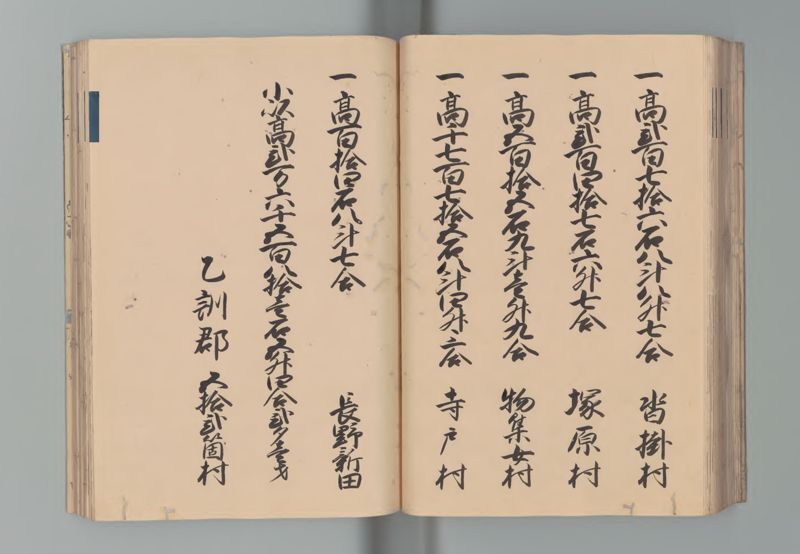 一高弐百七拾六石八斗八升七合 沓掛村
一高弐百四拾七石六升七合 塚原村
一高五百拾五石九斗壱升九合 物集女村
一高千七百七拾五石八斗四升三合 寺戸村
一高百拾四石八斗七合 長野新田
小以高弐万六千五百八拾壱石五升四合弐夕壱才
乙訓郡 五拾弐箇村